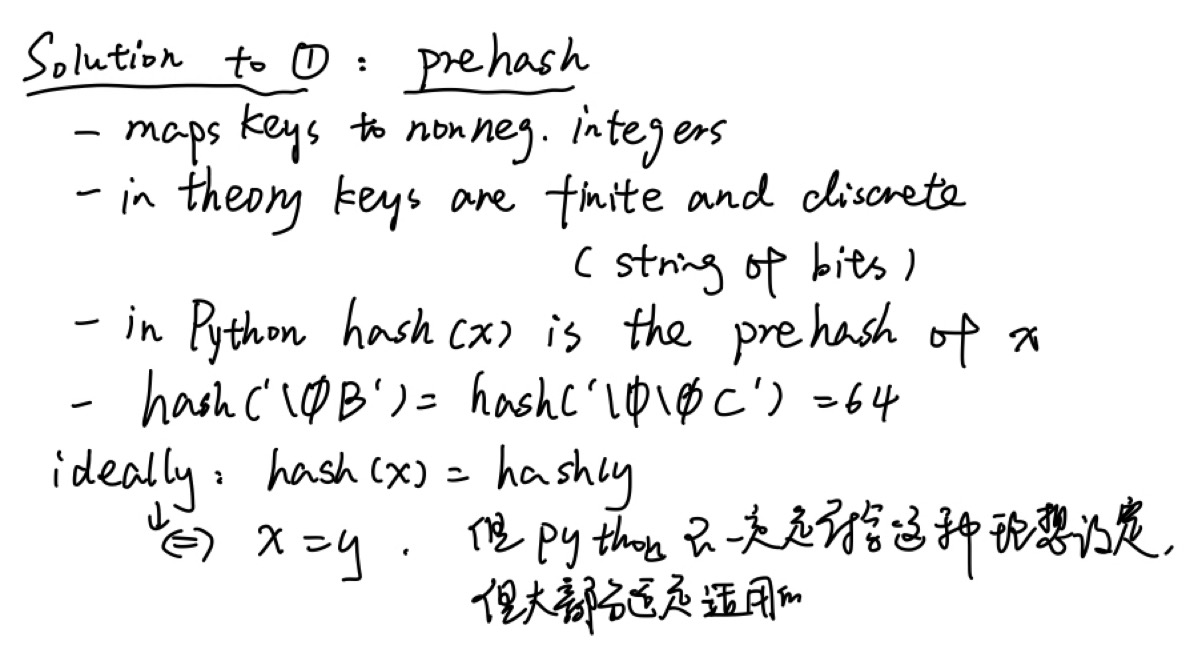 Solution to ①: prehash
- maps keys to nonneg. integers
- in theory keys are finite and discrete
(string of bits)
- in Python hash(x) is the prehash of x
- hash('\0B') = hash('\0\0C') = 64
ideally: hash(x) = hash(y
↓⇔ x = y . 但python不一定是符合这种理想设定,
但大部分还是适用的